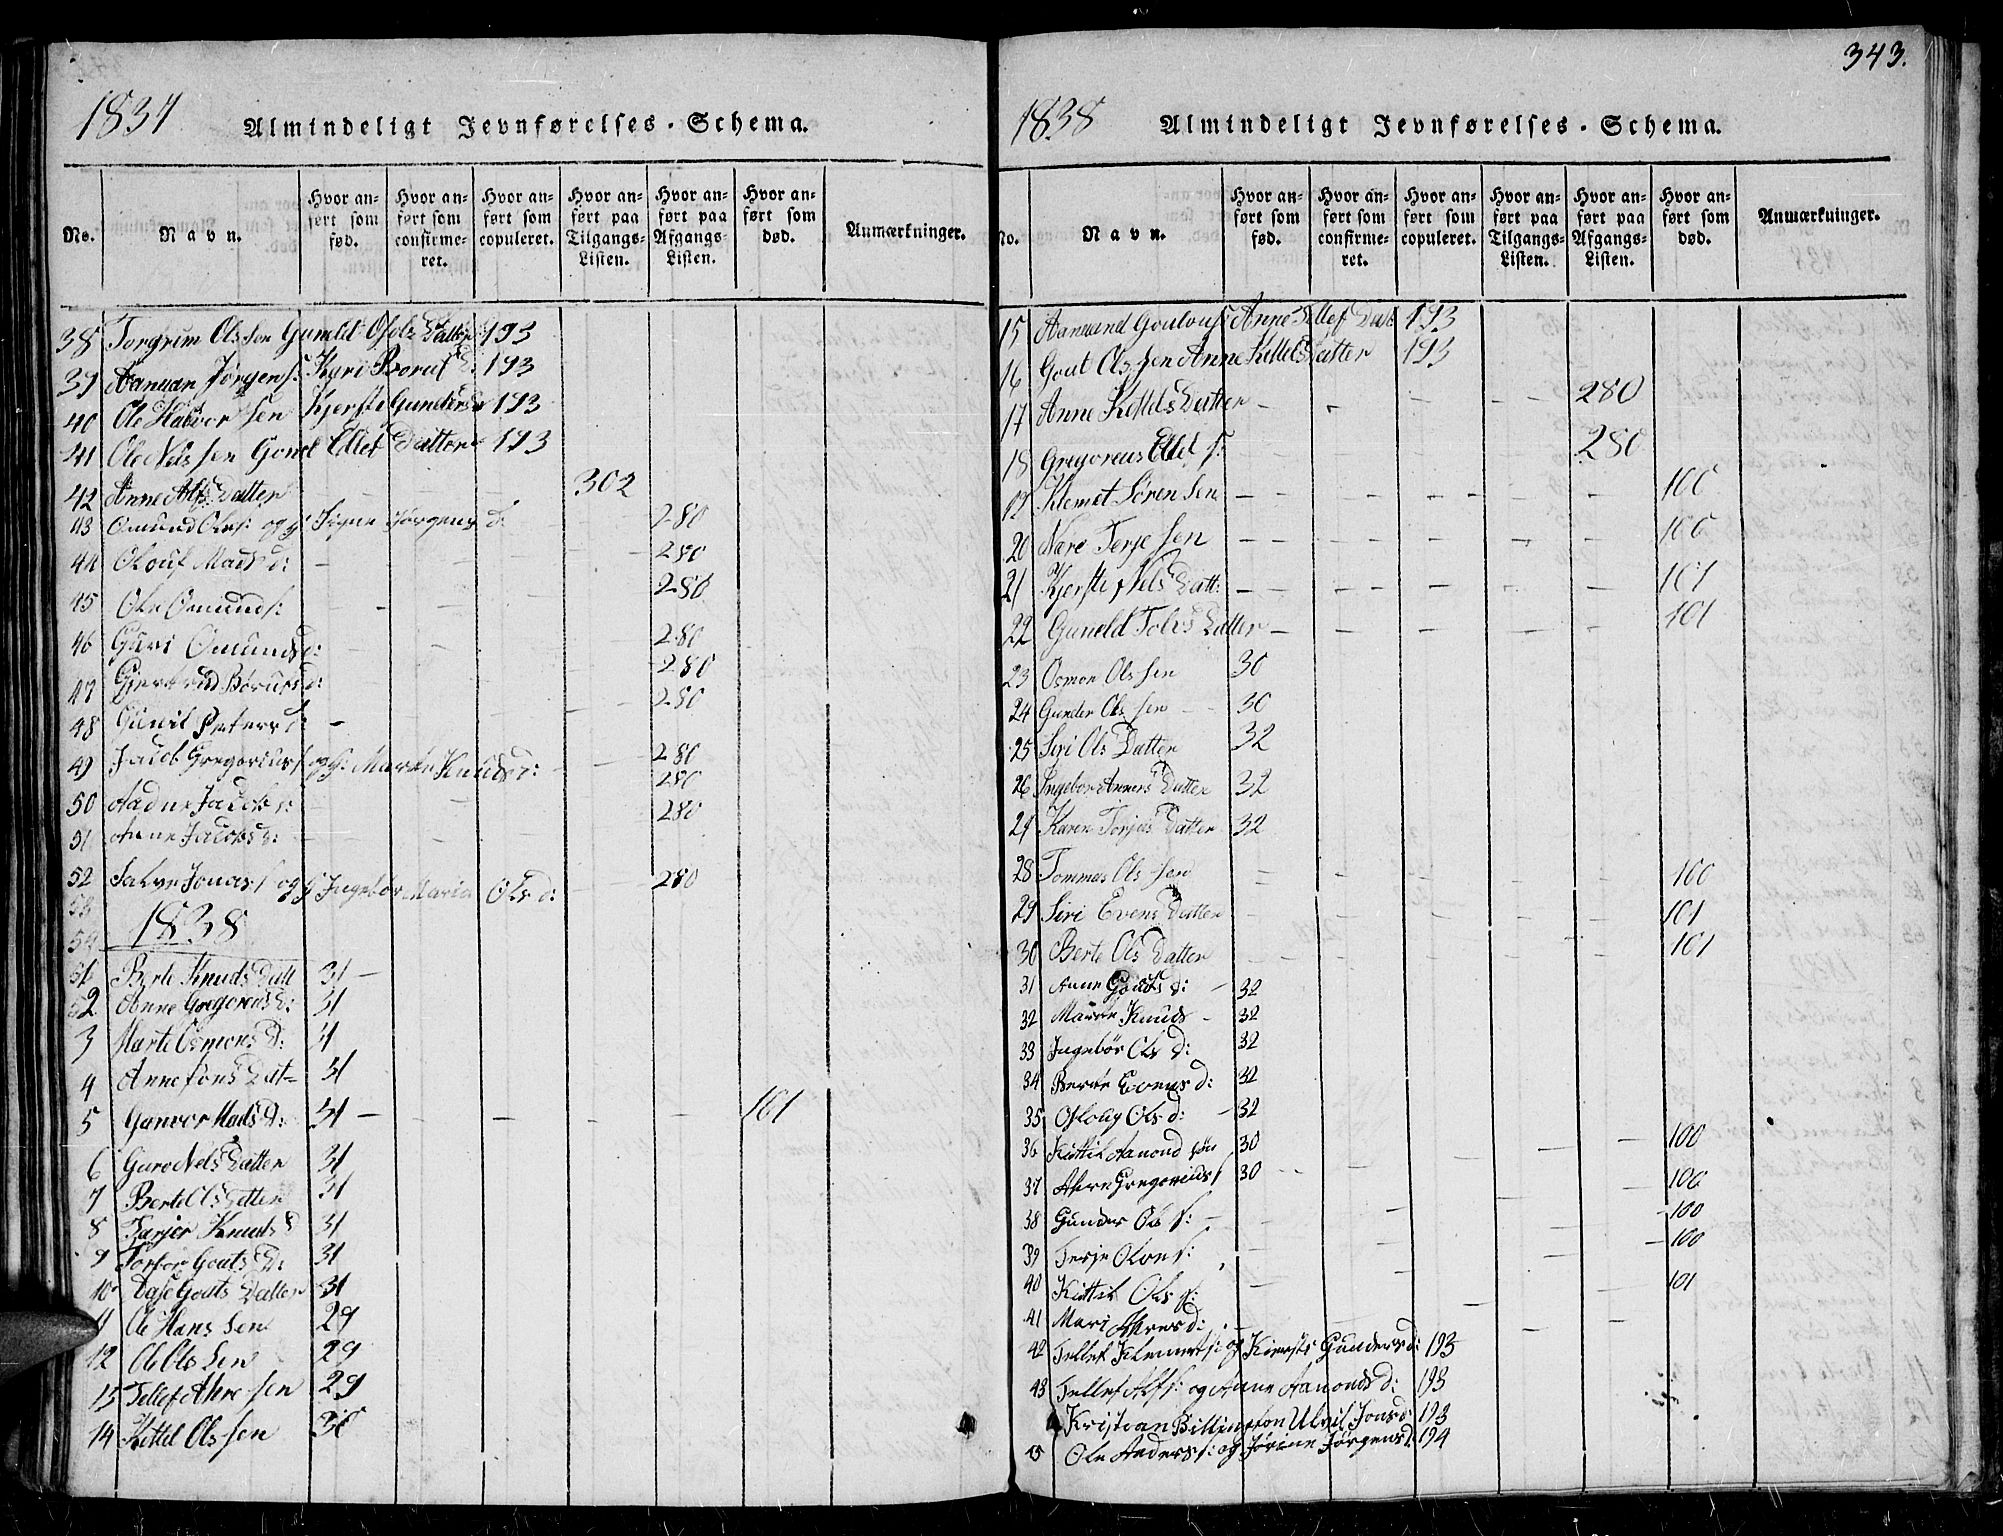 343.
1837 Almindeligt Jevnførelses-Schema.
No. Navn. Hvor anført som fød. Hvor anført som confirmeret. Hvor anført som copuleret. Hvor anført paa Tilgangs-Listen. Hvor anført paa Afgangs-Listen. Hvor anført som død. Anmærkninger.
38 Torgrim Olssen Gunild Datter 193
39 Aanuan Jørgens: Kyri 193
40 Ole Halvorsen Kjersti Gundersd 193
41 Ole Nelssen Gonel Edlef Datter 193
42 Anne Alfs Datter 302
43 Omund Ols: og h: Signe Jørgens d: 280
44 Olouf Mads d: 280
45 Ole Omunds: 280
46 Guri Omunds d: 280
47 Gjertrud d: 280
48 Gunil Peters d: 280
49 Jacob Gregorius og h: Marte Knuds d: 280
50 Aadne Jacobs: 280
51 Anne Jacobs d: 280
52 Salve Jonas og h Ingebor Maria Ols d: 280
53
54 1838
1 Berte Knuds Datt 31
2 Anne Gregorius d: 31
3 Marte Osmons d: 31
4 Anne Jøns Dat 31
5 Gunvor Mads D: 31 101
6 Guro Nels Datter 31
7 Berte Ols Datter 31
8 Tarjer Knuds d 31
9 Torbor Goats D: 31
10 Aase Goats Datter 31
11 Ole Hanssen 29
12 Ole Olssen 29
13 Tellef Ahresen 29
14 Kittel Olssen 30
1838 Almindeligt Jevnførelses-Schema.
No. Navn. Hvor anført som fød. Hvor anført som confirmeret. Hvor anført som copuleret. Hvor anført paa Tilgangs-Listen. Hvor anført paa Afgangs-Listen. Hvor anført som død. Anmærkninger.
15 Aanuand Anne Tellef Datt 193
16 Gout Olssen Anne Kittels Datter 193
17 Anne Kittels Datter 280
18 Gregoreus 280
19 Klemet Sørensen 100
20 Nare Terjesen 100
21 Kjersti Nels Datt: 101
22 Guneld Tolvs Datter 101
23 Osmon Olssen 30
24 Gunder Olssen 30
25 Siri Ols Datter 32
26 Ingebor Anners Datter 32
27 Karen Torjels Datter 32
28 Tommes Olssen 100
29 Siri Evens Datter 101
30 Berte Ols Datter 101
31 Anne Gouts d: 32
32 Marte Knuds 32
33 Ingebor Ols d: 32
34 Berte Evens d: 32
35 Osloug Ols d: 32
36 Kittil Aamond søn 30 100
37 Ahre Gregorius 30 100
38 Gunder Ols s: 100
39 Terje Olves: 100
40 Kittil Ols s: 101
41 Mari Ahres d:
42 Tellef Klemets: og Kiersti Gunders d: 193
43 Tellef Alfs: og Anne Aamonds d: 193
Kristian Billington Ulvil Jons d: 193
Ole Anders s: og Jørine Jørgens d. 194